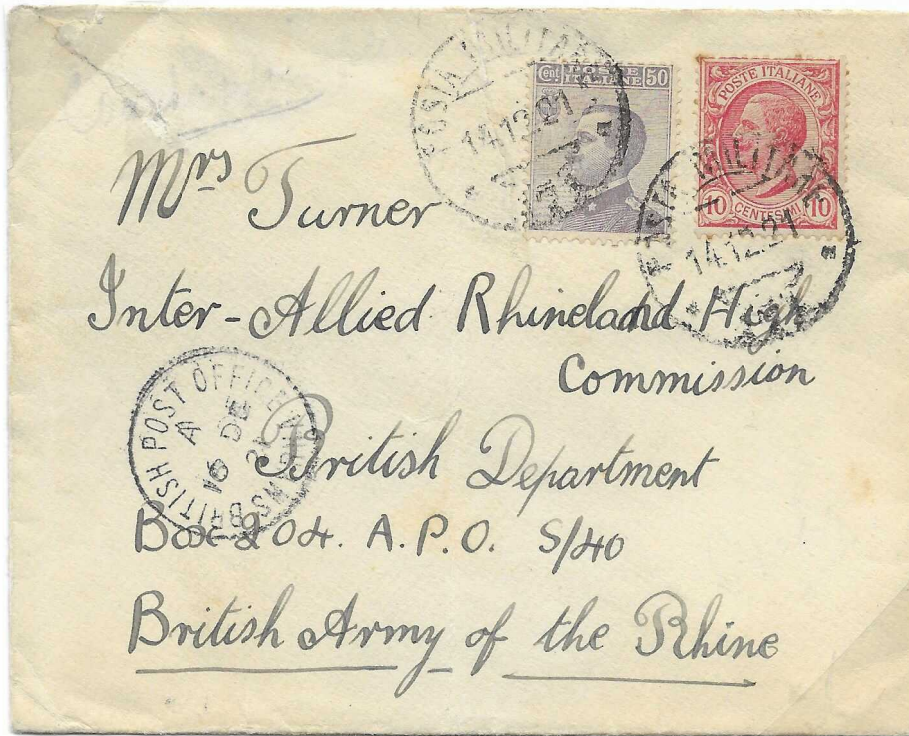 POSTA MILITARE
14.12.21
Cent. POSTE 50
ITALIANE
POSTE ITALIANE
10 CENTESIMI 10
POSTA MILITARE
14.12.21
Mrs Turner
Inter-Allied Rhineland High
Commission
BRITISH POST OFFICE
A
16 DE
21
British Department
Box 204. A.P.O. S/40
British Army of the Rhine